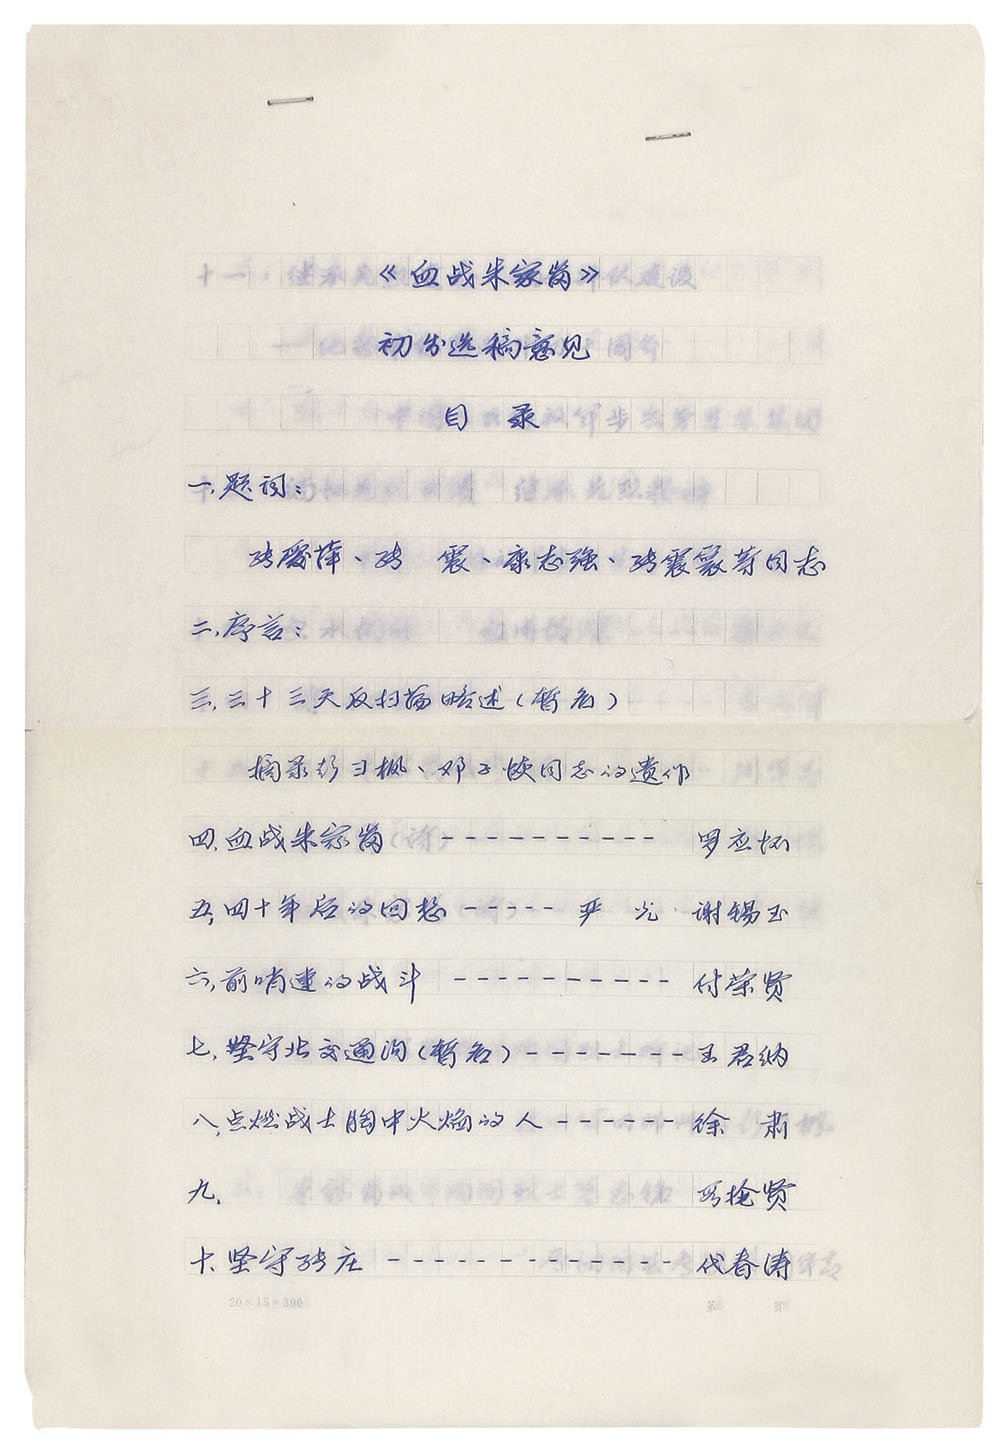 《血战朱家岗》
初步选稿意见
目 录
一、题词：
张爱萍、张 震、康志强、张震寰等同志
二、序言：
三、三十三天反扫荡略述（暂名）
摘录彭雪枫、邓子恢同志的遗作
四、血战朱家岗（诗）---------- 罗应怀
五、四十年后的回想----- 严 光 谢锡玉
六、前哨连的战斗 ---------- 付荣贤
七、坚守北交通沟（暂名）------- 王君纳
八、点燃战士胸中火焰的人 ------ 徐 肃
九、 贤
十、坚守张庄 ------------ 代春涛
20×15=300
第 页